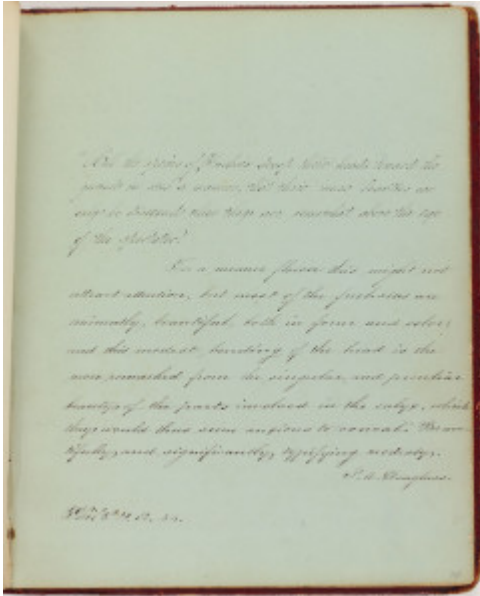 "All the species of Fuchsia droop their heads toward the
ground in such a manner, that their inner beauties are
only discerned when they are somewhat above the eye
of the spectator."
For a meaner flower this might not
attract attention, but most of the fuchsias are
eminently beautiful, both in form and color;
and this modest bending of the head is the
more remarked from the singular and peculiar
beauty of the parts involved in the calyx, which
they would thus seem anxious to conceal: Beau-
tifully, and significantly, typifying modesty.
Douglass.